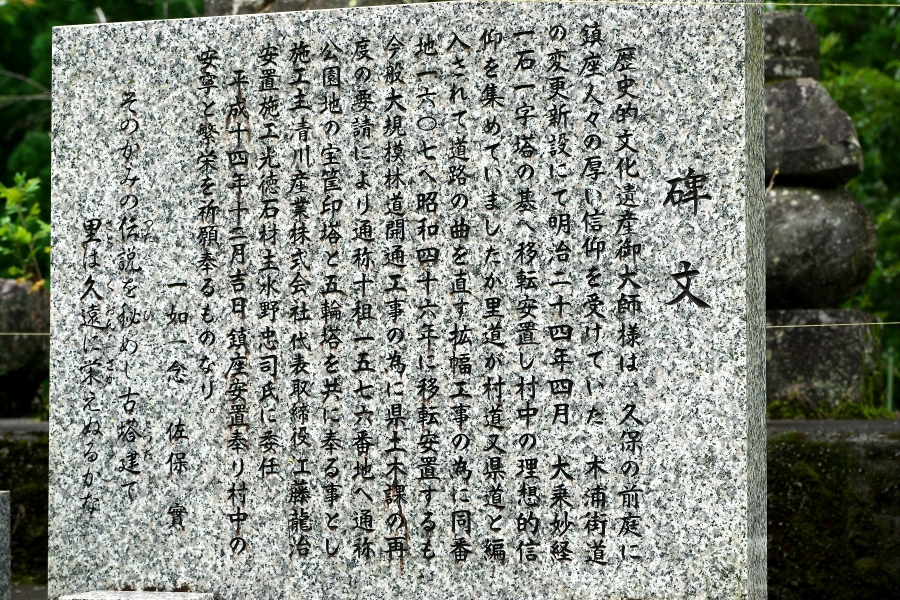 碑文
歴史的文化遺産御大師様は、久保の前庭に
鎮座人々の厚い信仰を受けていた。木浦街道
の変更新設にて明治二十四年四月 大乗妙経
一石一字塔の墓へ移転安置し村中の理想的信
仰を集めていましたか里道が村道又県道と編
入されて道路の曲を直す拡幅工事の為に同番
地一六〇七へ昭和四十六年に移転安置するも
今般大規模林道開通工事の為に県土木課の再
度の要請により通称十祖一五七六番地へ通称
公園地の宝筐印塔と五輪塔を共に奉る事とし
施工主清川産業株式会社代表取締役工藤龍治
安置施工光徳石材主水野忠司氏に委任
平成十四年十二月吉日鎮座安置奉り村中の
安寧と繁栄を祈願奉るものなり。
一如一念 佐保 實
そのかみの伝説を秘めし古塔建て
里は久遠に栄えぬるかな